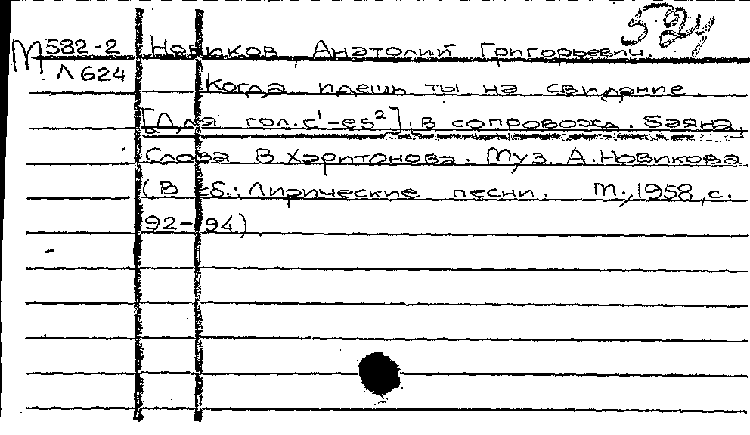 524
М 582-2 Новиков Анатолий Григорьевич.
Л 624
Когда идешь ты на свидание.
[Для гол. c¹-es²] в сопровожд. баяна.
Слова В. Харитонова. Муз. А. Новикова
(В сб.: Лирические песни. М., 1958, с.
92-94)